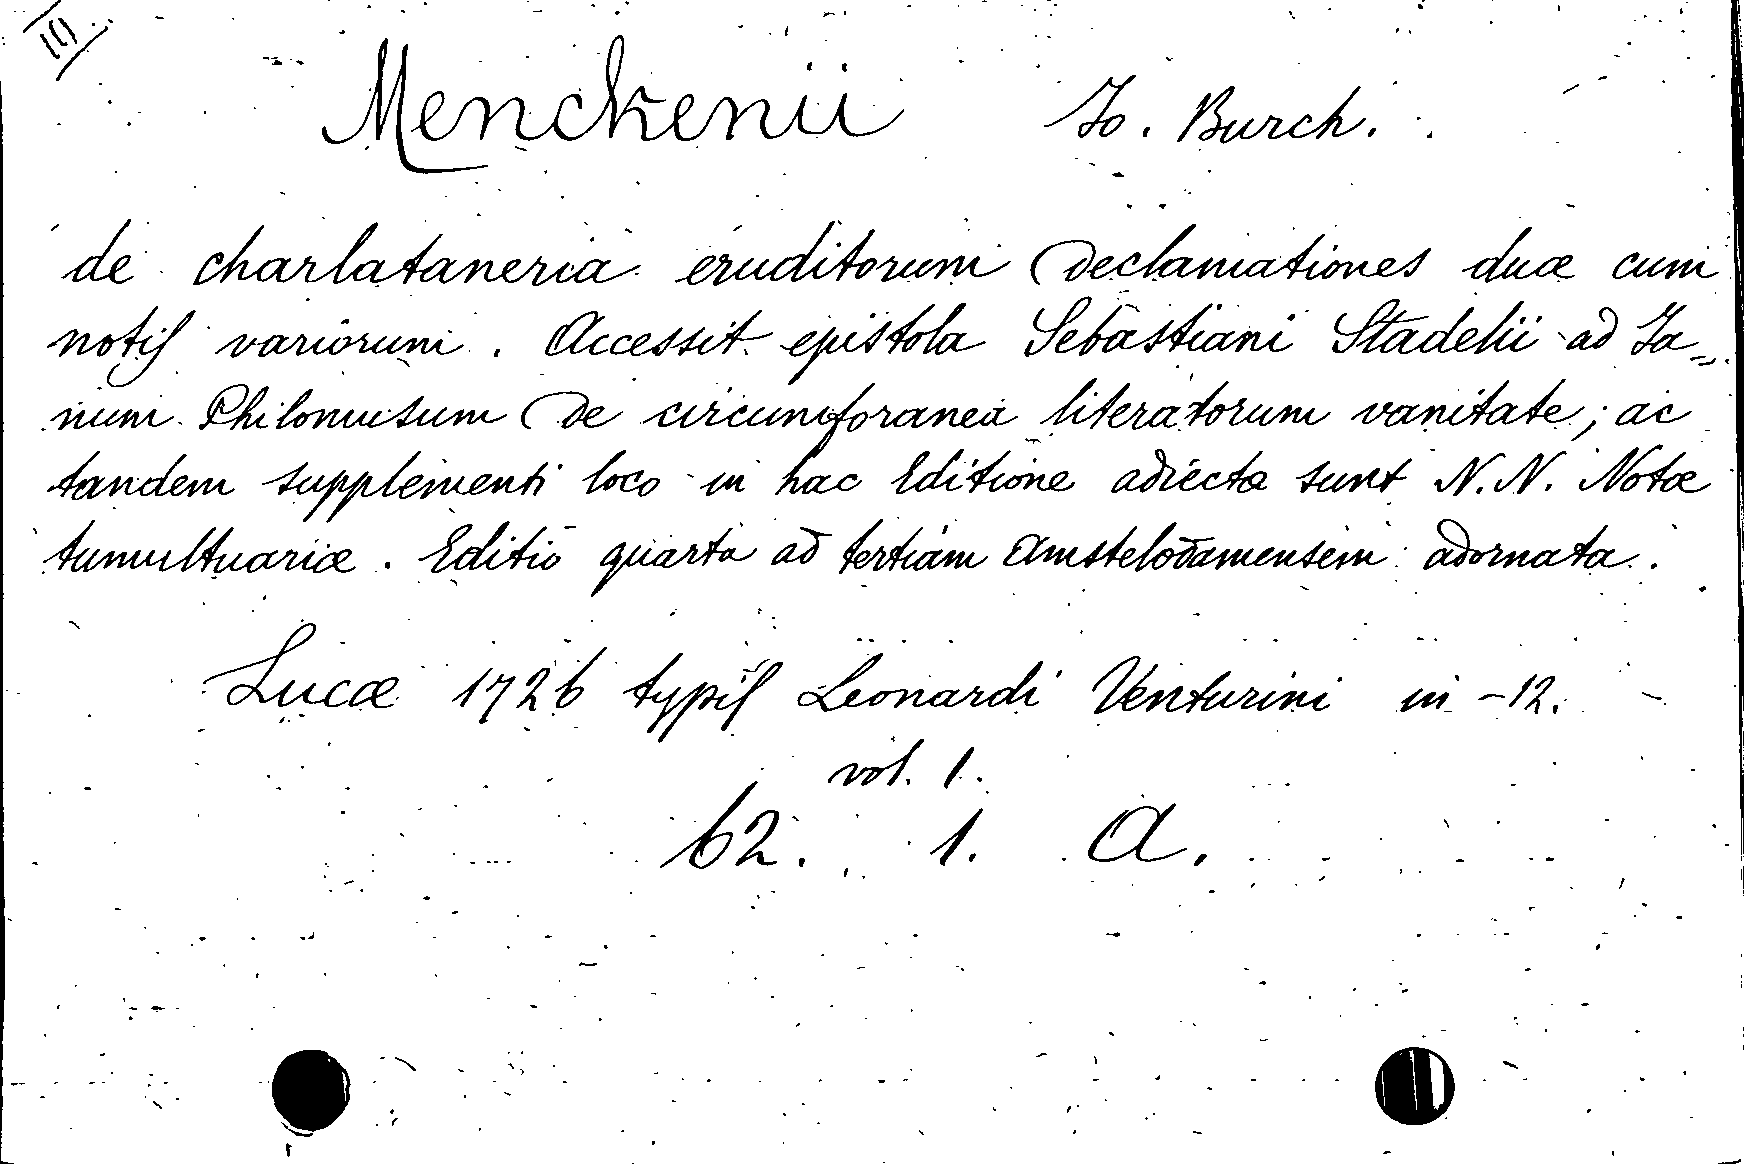 10
Menckenii Jo. Burch.
de charlataneria eruditorum declamationes duæ cum
notis variorum. Accessit epistola Sebastiani Stadelii ad Ja=
num Philomusum de circumforanea literatorum vanitate; ac
tandem supplementi loco in hac Editione adiectæ sunt N. N. Notæ
tumultuariæ. Editio quarta ad tertiam Amstelodamensem adornata.
Lucæ 1726 typis Leonardi Venturini in -12.
vol. 1.
62. 1. A.